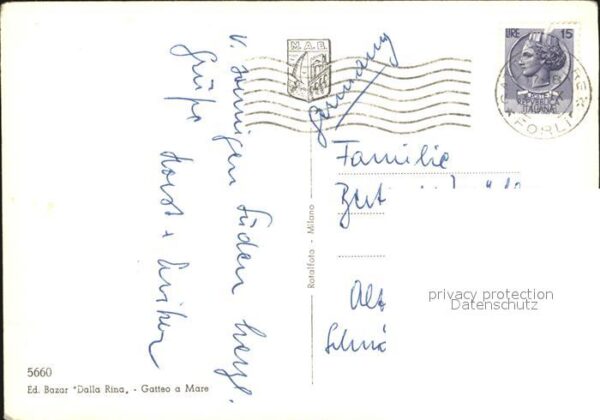 V. sonnigen Süden herzl.
Grüße
Horst +
Germany
Familie
Bert
Alt
M.A.B.
LIRE 15
POSTE
REPUBBLICA
ITALIANA
FORLI
Rotalfoto - Milano
privacy protection
Datenschutz
5660
Ed. Bazar "Dalla Rina„ - Gatteo a Mare